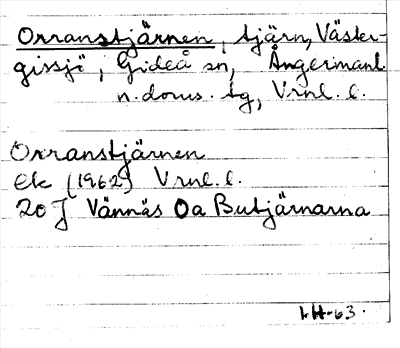 Orranstjärnen, tjärn, Väster-
gissjö, Gideå sn, Ångermanl.
n. doms. tg, Vrnl. l.
Orranstjärnen
Ek (1962) Vrnl. l.
20 J Vännäs Oa Butjärnarna
HH-63.